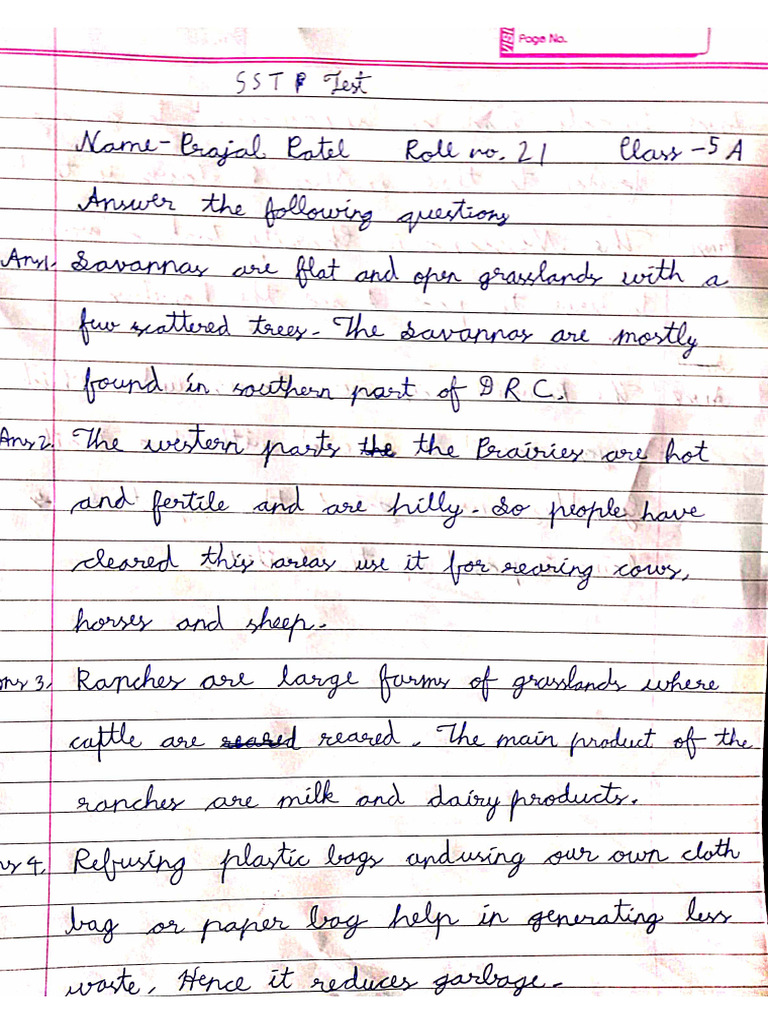 Page No.
SST Test
Name- Prajal Patel Roll no. 21 Class -5 A
Answer the following questions
Ans1. Savannas are flat and open grasslands with a
few scattered trees. The savannas are mostly
found in southern part of D R C.
Ans 2. The western parts the the Prairies are hot
and fertile and are hilly. So people have
cleared this areas use it for rearing cows,
horses and sheep.
ans 3. Ranches are large farms of grasslands where
cattle are reared reared. The main product of the
ranches are milk and dairy products.
ns 4. Refusing plastic bags and using our own cloth
bag or paper bag help in generating less
waste. Hence it reduces garbage.